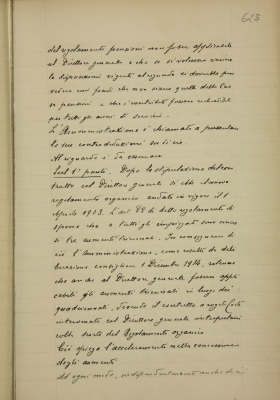 623
del regolamento pensioni non fosse applicabile
al Direttore generale e che se si volevano variare
le disposizioni vigenti al riguardo si dovrebbe prov
vedere con fondi che non siano quelli della Cassa
pensioni e che i contributi fossero
per tutti gli anni di servizio.
L'Amministrazione è chiamata a presentare
le sue controdeduzioni su di ciò.
Al riguardo è da osservare
Sul 1° punto. Dopo la stipulazione del con
tratto col Direttore generale si ebbe il nuovo
regolamento organico andato in vigore il 1°
Aprile 1913. L'art 88 di detto regolamento di
spone che a tutti gli impiegati sono concessi
si tre aumenti triennali. In conseguenza di
ciò l'Amministrazione, come risulta da deli
berazione consigliare 1 Dicembre 1914, ritenne
che anche al Direttore generale fossero appli
cabili gli aumenti triennali in luogo dei
quadriennali, essendo il contratto a
intervenuto col Direttore generale interpretato
colle norme del Regolamento organico
Ciò spiega l'acceleramento nella concessione
degli aumenti.
Ad ogni modo, indipendentemente anche da ciò